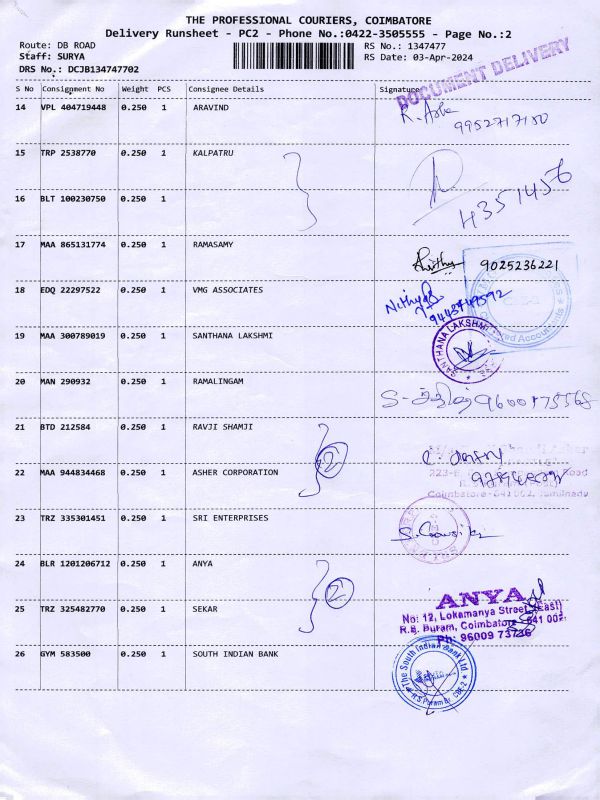 THE PROFESSIONAL COURIERS, COIMBATORE
Delivery Runsheet - PC2 - Phone No.:0422-3505555 - Page No.:2
Route: DB ROAD
RS No.: 1347477
Staff: SURYA
RS Date: 03-Apr-2024
DRS No.: DCJB134747702
DOCUMENT DELIVERY
S No Consignment No Weight PCS Consignee Details Signature
14 VPL 404719448 0.250 1 ARAVIND
9952717150
15 TRP 2538770 0.250 1 KALPATRU
16 BLT 100230750 0.250 1
H351456
17 MAA 865131774 0.250 1 RAMASAMY
9025236221
18 EDQ 22297522 0.250 1 VMG ASSOCIATES
Nithya
9443749592
19 MAA 300789019 0.250 1 SANTHANA LAKSHMI
SANTHANA LAKSHMI
20 MAN 290932 0.250 1 RAMALINGAM
21 BTD 212584 0.250 1 RAVJI SHAMJI
2
22 MAA 944834468 0.250 1 ASHER CORPORATION
Coimbatore-641 002, Tamilnadu
23 TRZ 335301451 0.250 1 SRI ENTERPRISES
24 BLR 1201206712 0.250 1 ANYA
2
25 TRZ 325482770 0.250 1 SEKAR
ANYA
No: 12, Lokamanya Street (East)
R.S. Puram, Coimbatore - 641 002.
Ph: 96009 73736
26 GYM 583500 0.250 1 SOUTH INDIAN BANK
The South Indian Bank Ltd
R.S. Puram Br. CBE-2